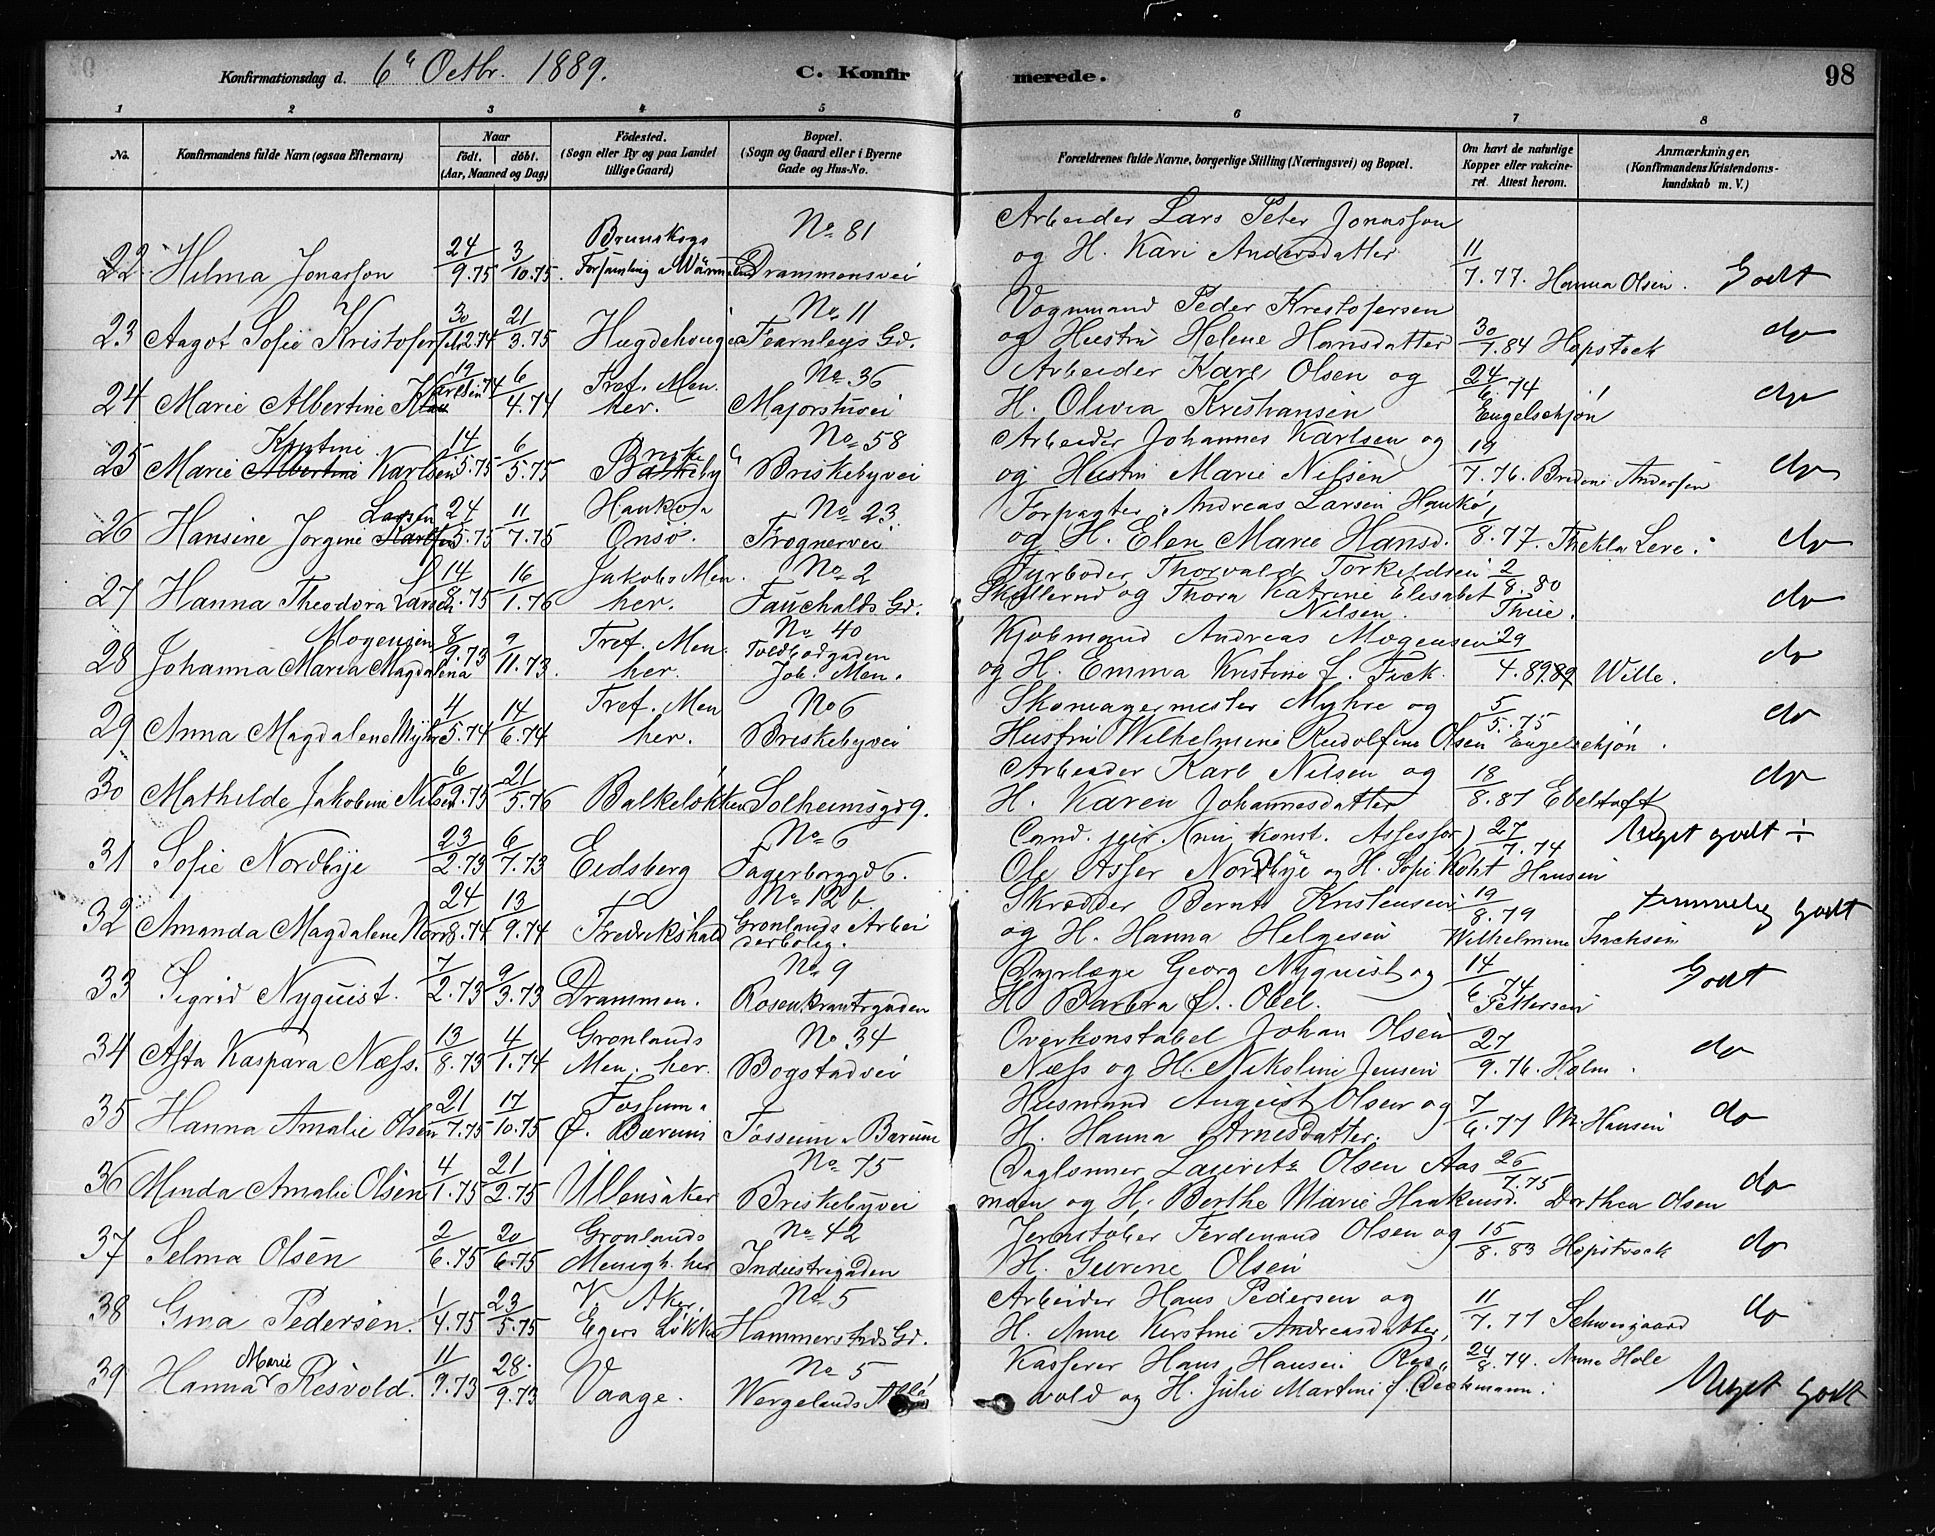 Konfirmationsdag d. 6te Octbr. 1889. C. Konfirmerede. 98
1 2 3 4 5 6 7 8
No. Konfirmandens fulde Navn (ogsaa Efternavn) Naar födt. döbt. (Aar, Maaned og Dag) Födested. (Sogn eller By og paa Landet tillige Gaard) Bopæl. (Sogn og Gaard eller i Byerne Gade og Hus-No. Forældrenes fulde Navne, borgerlige Stilling (Næringsvei) og Bopæl. Om havt de naturlige Kopper eller vakcineret. Attest herom. Anmærkninger. (Konfirmandens Kristendomskundskab m. V.)
No 81 Arbeider Lars Peter Jonasson
22 Hilma Jonasson 24/9.75 3/10.75. Brunskogs Forsamling i Wärmeland Drammensvei og H. Kari Andersdatter 11/7.77. Hanna Olsen. Godt
No 11 Vognmand Peder Kristofersen
23 Aagot Sofie Kristofersen 30/12.74 21/3.75 Hægdehougen Fearnleys Gd. og Hustru Helene Hansdatter 30/7.84 Hopstock do
No 36 Arbeider Karl Olsen og
24 Marie Albertine Karlsen 19/ 74 6/4.74 Tref. Men. her. Majorstuvei H. Olivia Kristiansen 24/6.74 Engelschjøn do
Kristine No 58 Arbeider Johannes Karlsen og
25 Marie Albertine Karlsen 14/5.75 6/5.75 Briskeby Briskebyvei og Hustru Marie Nilsen 19/7.76. Andersen do
Larsen No 23 Forpagter Andreas Larsen Hankø
26 Hansine Jørgine Karlsen 24/5.75 11/7.75 Hankø Onsø. Frognervei og H. Elen Marie Hansd. 1/8.77. Thekla Lere. do
No 2 Fyrbøder Thorvald Torkeldsen
27 Hanna Theodora Larsen 14/8.75 16/1.76 Jakobs Men. her. Fauchalds Gd. Skullerud og Thora Katrine Elisabet Nilsen. 2/8.80 Thue. do
Mogensen No 40 Kjøbmand Andreas Mogensen
28 Johanna Maria Magdalena 8/9.73 9/11.73. Tref. Men. her. Toldbodgaden Joh. Men. og H. Emma Kristine f. Fick. 29/4.89 Wille. do
No 6 Skomagermester Myhre og
29 Anna Magdalene Myhre 4/5.74 14/6.74 Tref. Men her. Briskebyvei Hustru Wilhelmine Rudolfine Olsen 5/5.75 Engelschjøn. do
Arbeider Karl Nilsen og
30 Mathilde Jakobine Nilsen 6/9.75 21/5.76 Balkeløkken Solheimsgd 9. H. Karen Johannesdatter 18/8.87 Ebeltoft do
No 6 Cand. jur. (nu konst. Assessor)
31 Sofie Nordbye 23/2.73 6/7.73 Eidsberg Fagerborggd 6. Ole Asser Nordbye og H. Sofie Koht 27/7.74 Hansen Meget godt ÷
No 12 b. Skrædder Bernt Kristensen
32 Amanda Magdalene Norr 24/8.74 13/9.74 Fredrikshald Grønlands Arbeiderbolig. og H. Hanna Helgesen 19/8.79 Wilhelmine Isachsen temmelig godt
No 9 Dyrlæge Georg Nyquist og
33 Sigrid Nyquist. 7/2.73 9/3.73 Drammen. Rosenkrantzgaden H. Barbra f. Obel. 14/6.74 Pettersen Godt
No 34 Overkonstabel Johan Olsen
34 Asta Kaspara Næss. 13/8.73 4/1.74 Grønlands Men. her. Bogstadvei Næss og H. Nikoline Jensen 27/9.76. Holm. do
Husmand August Olsen og
35 Hanna Amalie Olsen 21/7.75 17/10.75 Fossum Ø. Bærum Fossum Bærum H. Hanna Arnesdatter. 7/6.77 M. Hansen do
No 75 Daglønner Laurits Olsen Aas
36 Minda Amalie Olsen 4/1.75 21/2.75 Ullensaker Briskebyvei men og H. Berthe Marie Haakensd. 26/7.75 Dorthea Olsen do
No 42 Jernstøber Ferdinand Olsen og
37 Selma Olsen 2/6.75 20/6.75 Grønlands Menigh. her Industrigaden H. Gurine Olsen 15/8.83 Hopstock do
No 5 Arbeider Hans Pedersen og
38 Gina Pedersen. 1/4.75 23/5.75 V. Aker Egers Løkke Hammerstads Gd. H. Anne Kirstine Andreasdatter, 11/7.77 Schweigaard do
Marie No 5 Kasserer Hans Hansen Res-
39 Hanna Resvold. 11/9.73 28./9.73 Vaage. Wergelands Allé vold og H. Julie Martine f. Dechmann. 24/8.74. Anne Hole Meget godt